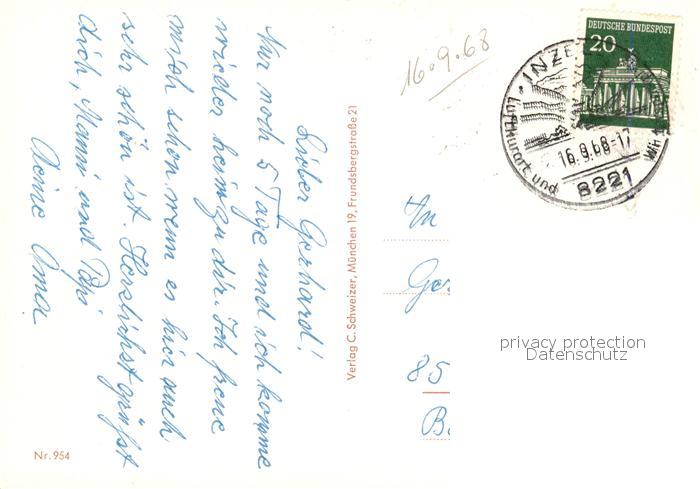 Lieber Gerhard!
Nur noch 5 Tage und ich komme
wieder heim zu dir. Ich freue
mich schon, wenn es hier auch
sehr schön ist. Herzlichst grüßt
dich, Mammi und Papi
Deine Oma
Nr. 954
Verlag C. Schweizer, München 19, Frundsbergstraße 21
16.9.68
DEUTSCHE BUNDESPOST
20
INZE
Luftkurort und Wi
16.9.68-17
8221
An
Ger
85
B
privacy protection
Datenschutz